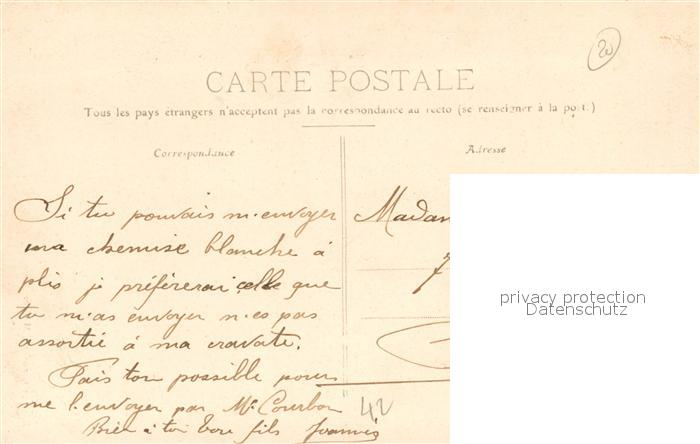 20
CARTE POSTALE
Tous les pays étrangers n'acceptent pas la correspondance au recto (se renseigner à la post.)
Correspondance
Adresse
Si tu pouvais m'envoyer
ma chemise blanche à
plis je préfèrerai celle que
tu m'as envoyer n'es pas
assortié à ma cravate.
Fais ton possible pour
me l'envoyer par Mr Courbon
Bien à toi fils
Madam
privacy protection
Datenschutz
42